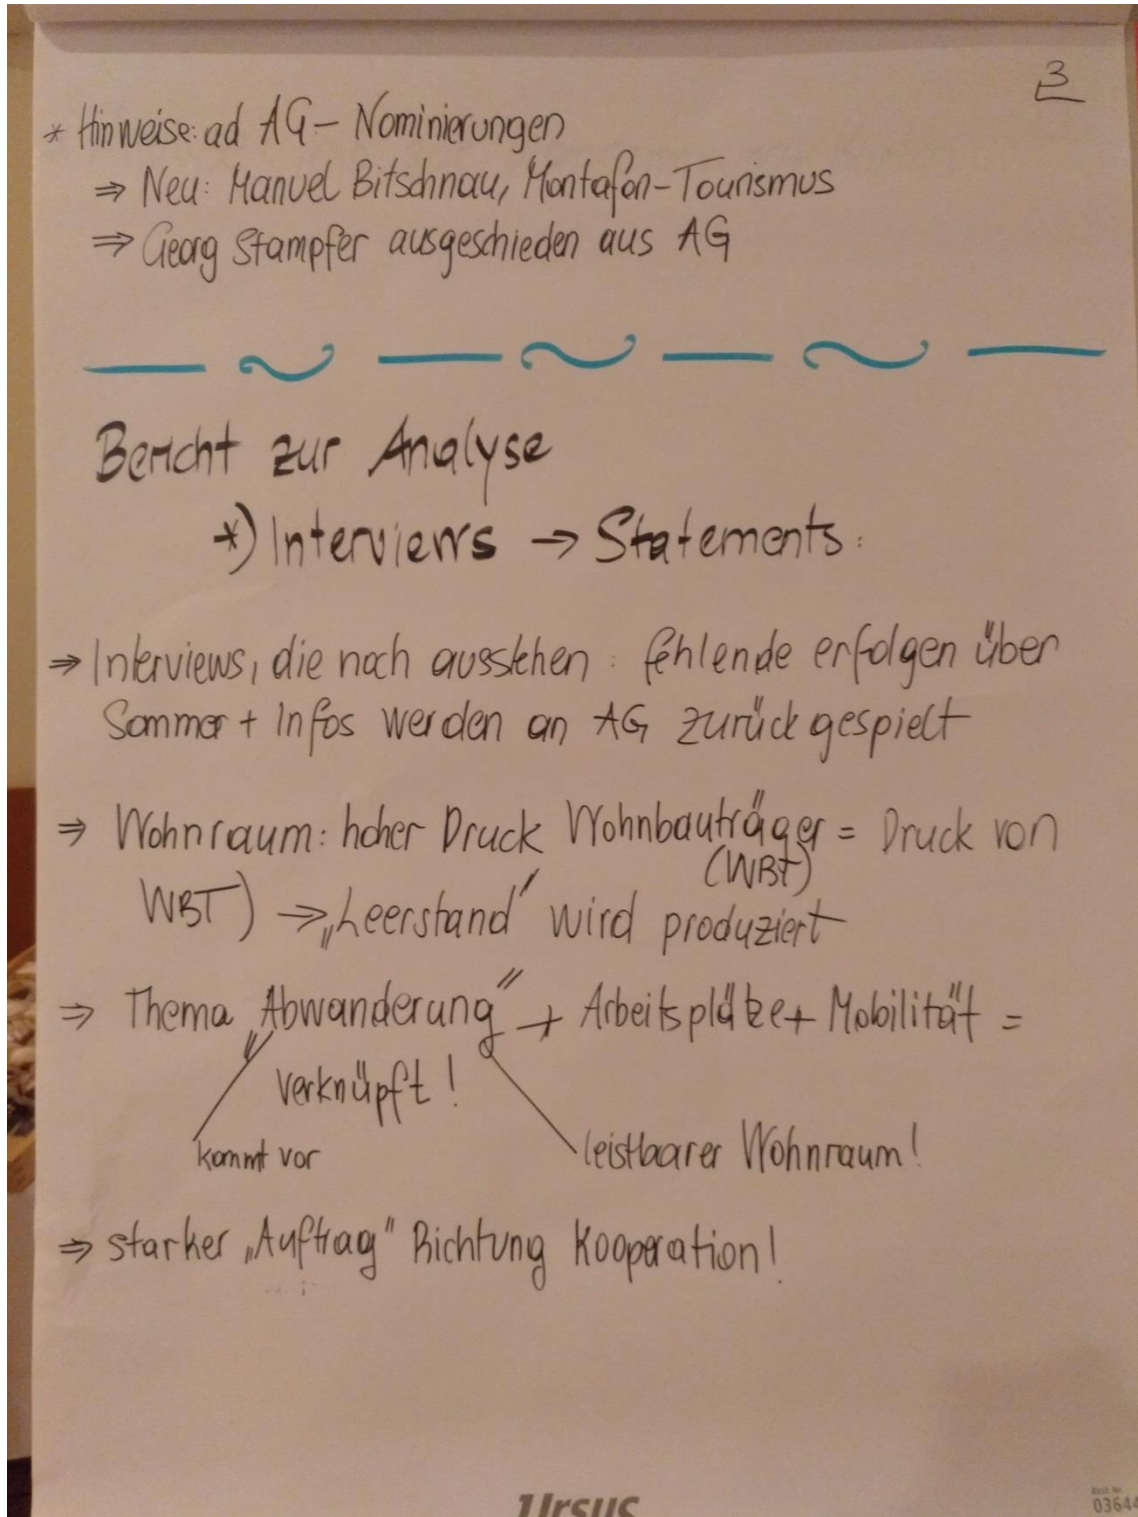 3
* Hinweise: ad AG - Nominierungen
⇒ Neu: Manuel Bitschnau, Montafon-Tourismus
⇒ Georg Stampfer ausgeschieden aus AG
Bericht zur Analyse
*) Interviews → Statements:
⇒ Interviews, die noch ausstehen: fehlende erfolgen über
Sommer + Infos werden an AG zurückgespielt
⇒ Wohnraum: hoher Druck Wohnbauträger = Druck von
(WBT)
WBT) → „Leerstand" wird produziert
⇒ Thema „Abwanderung" + Arbeitsplätze + Mobilität =
verknüpft!
kommt vor
leistbarer Wohnraum!
⇒ starker „Auftrag" Richtung Kooperation!
Ursus
Best. Nr.
03644